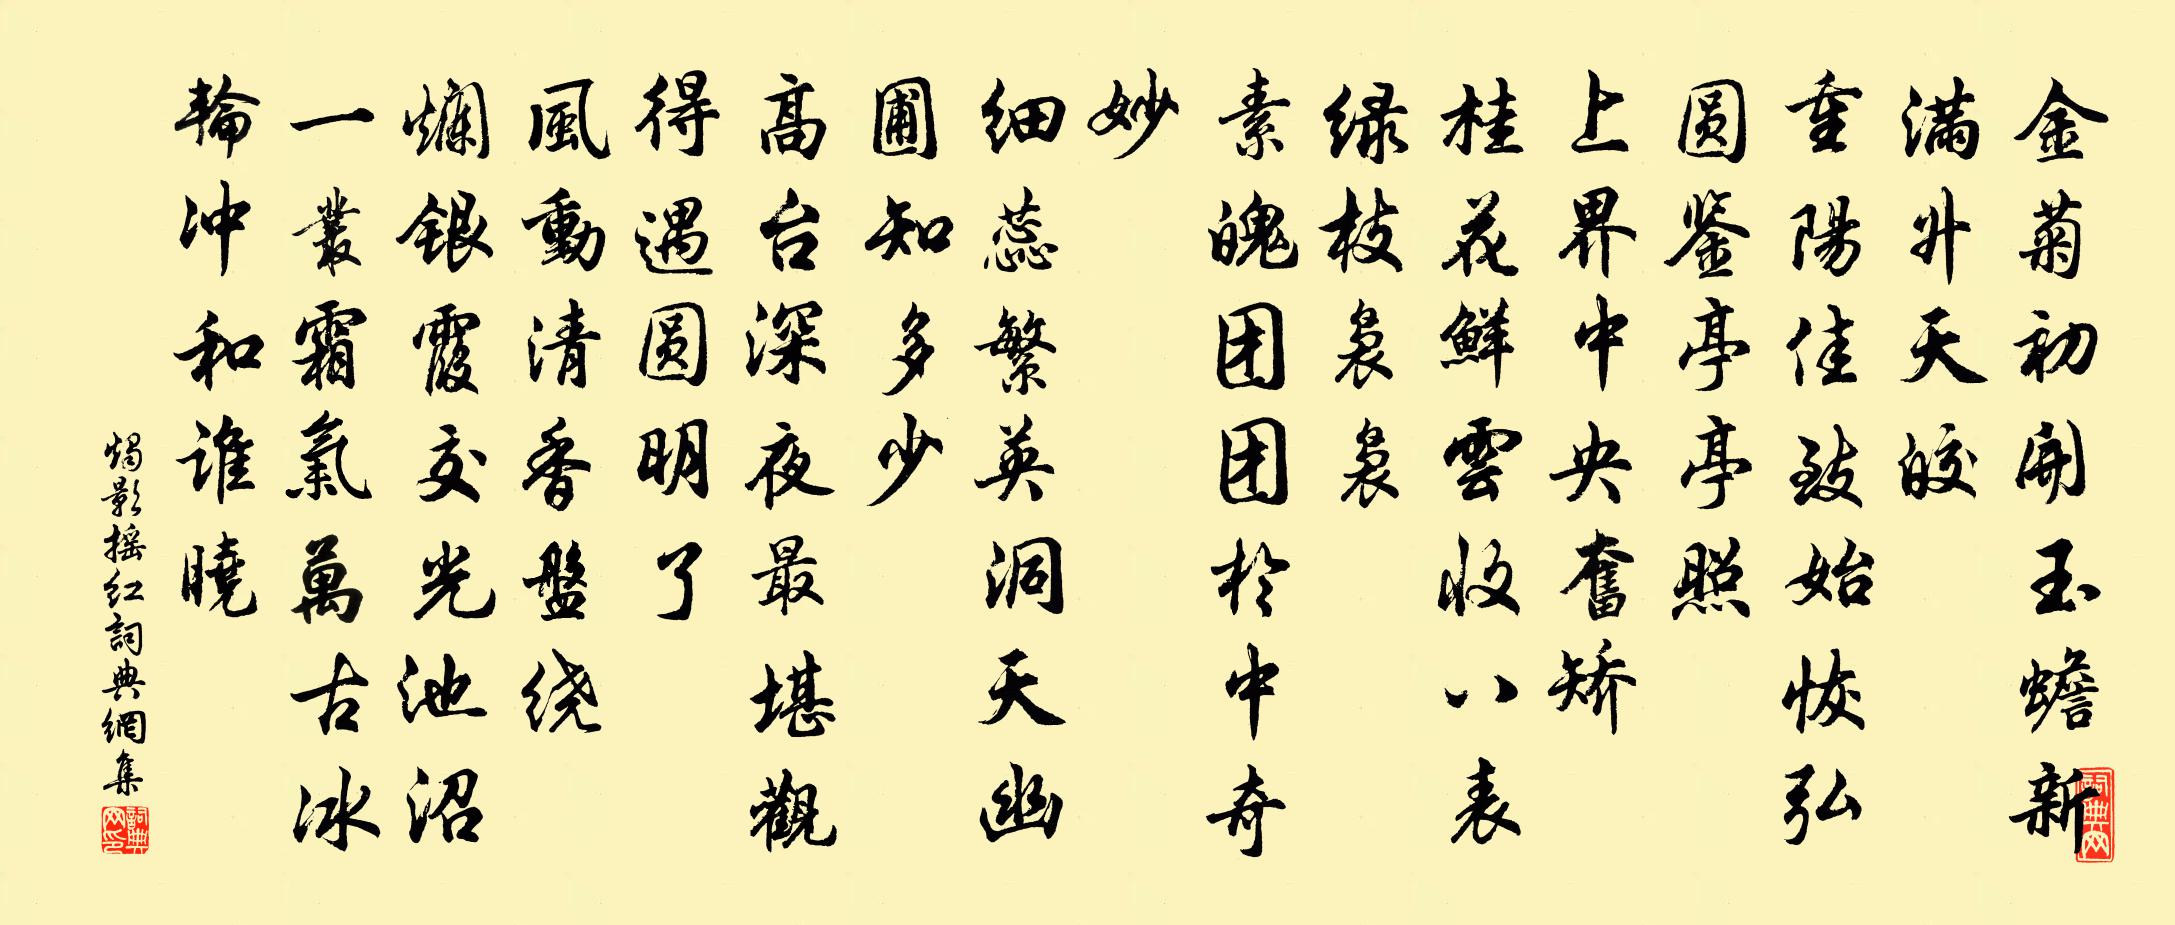 金菊初開玉蟾新
满升天皎
重陽佳致始恢弘
圆鉴亭亭照
上界中央奮矫
桂花鮮雲收八表
绿枝袅袅
素魄团团於中奇
妙
细蕊繁英洞天幽
圃知多少
高台深夜最堪觀
得遇圆明了
風動清香盤绕
爛銀霞交光池沼
一叢霜氣萬古冰
輪冲和谁曉
燭影摇红詞典網集
詞典网
詞典网印